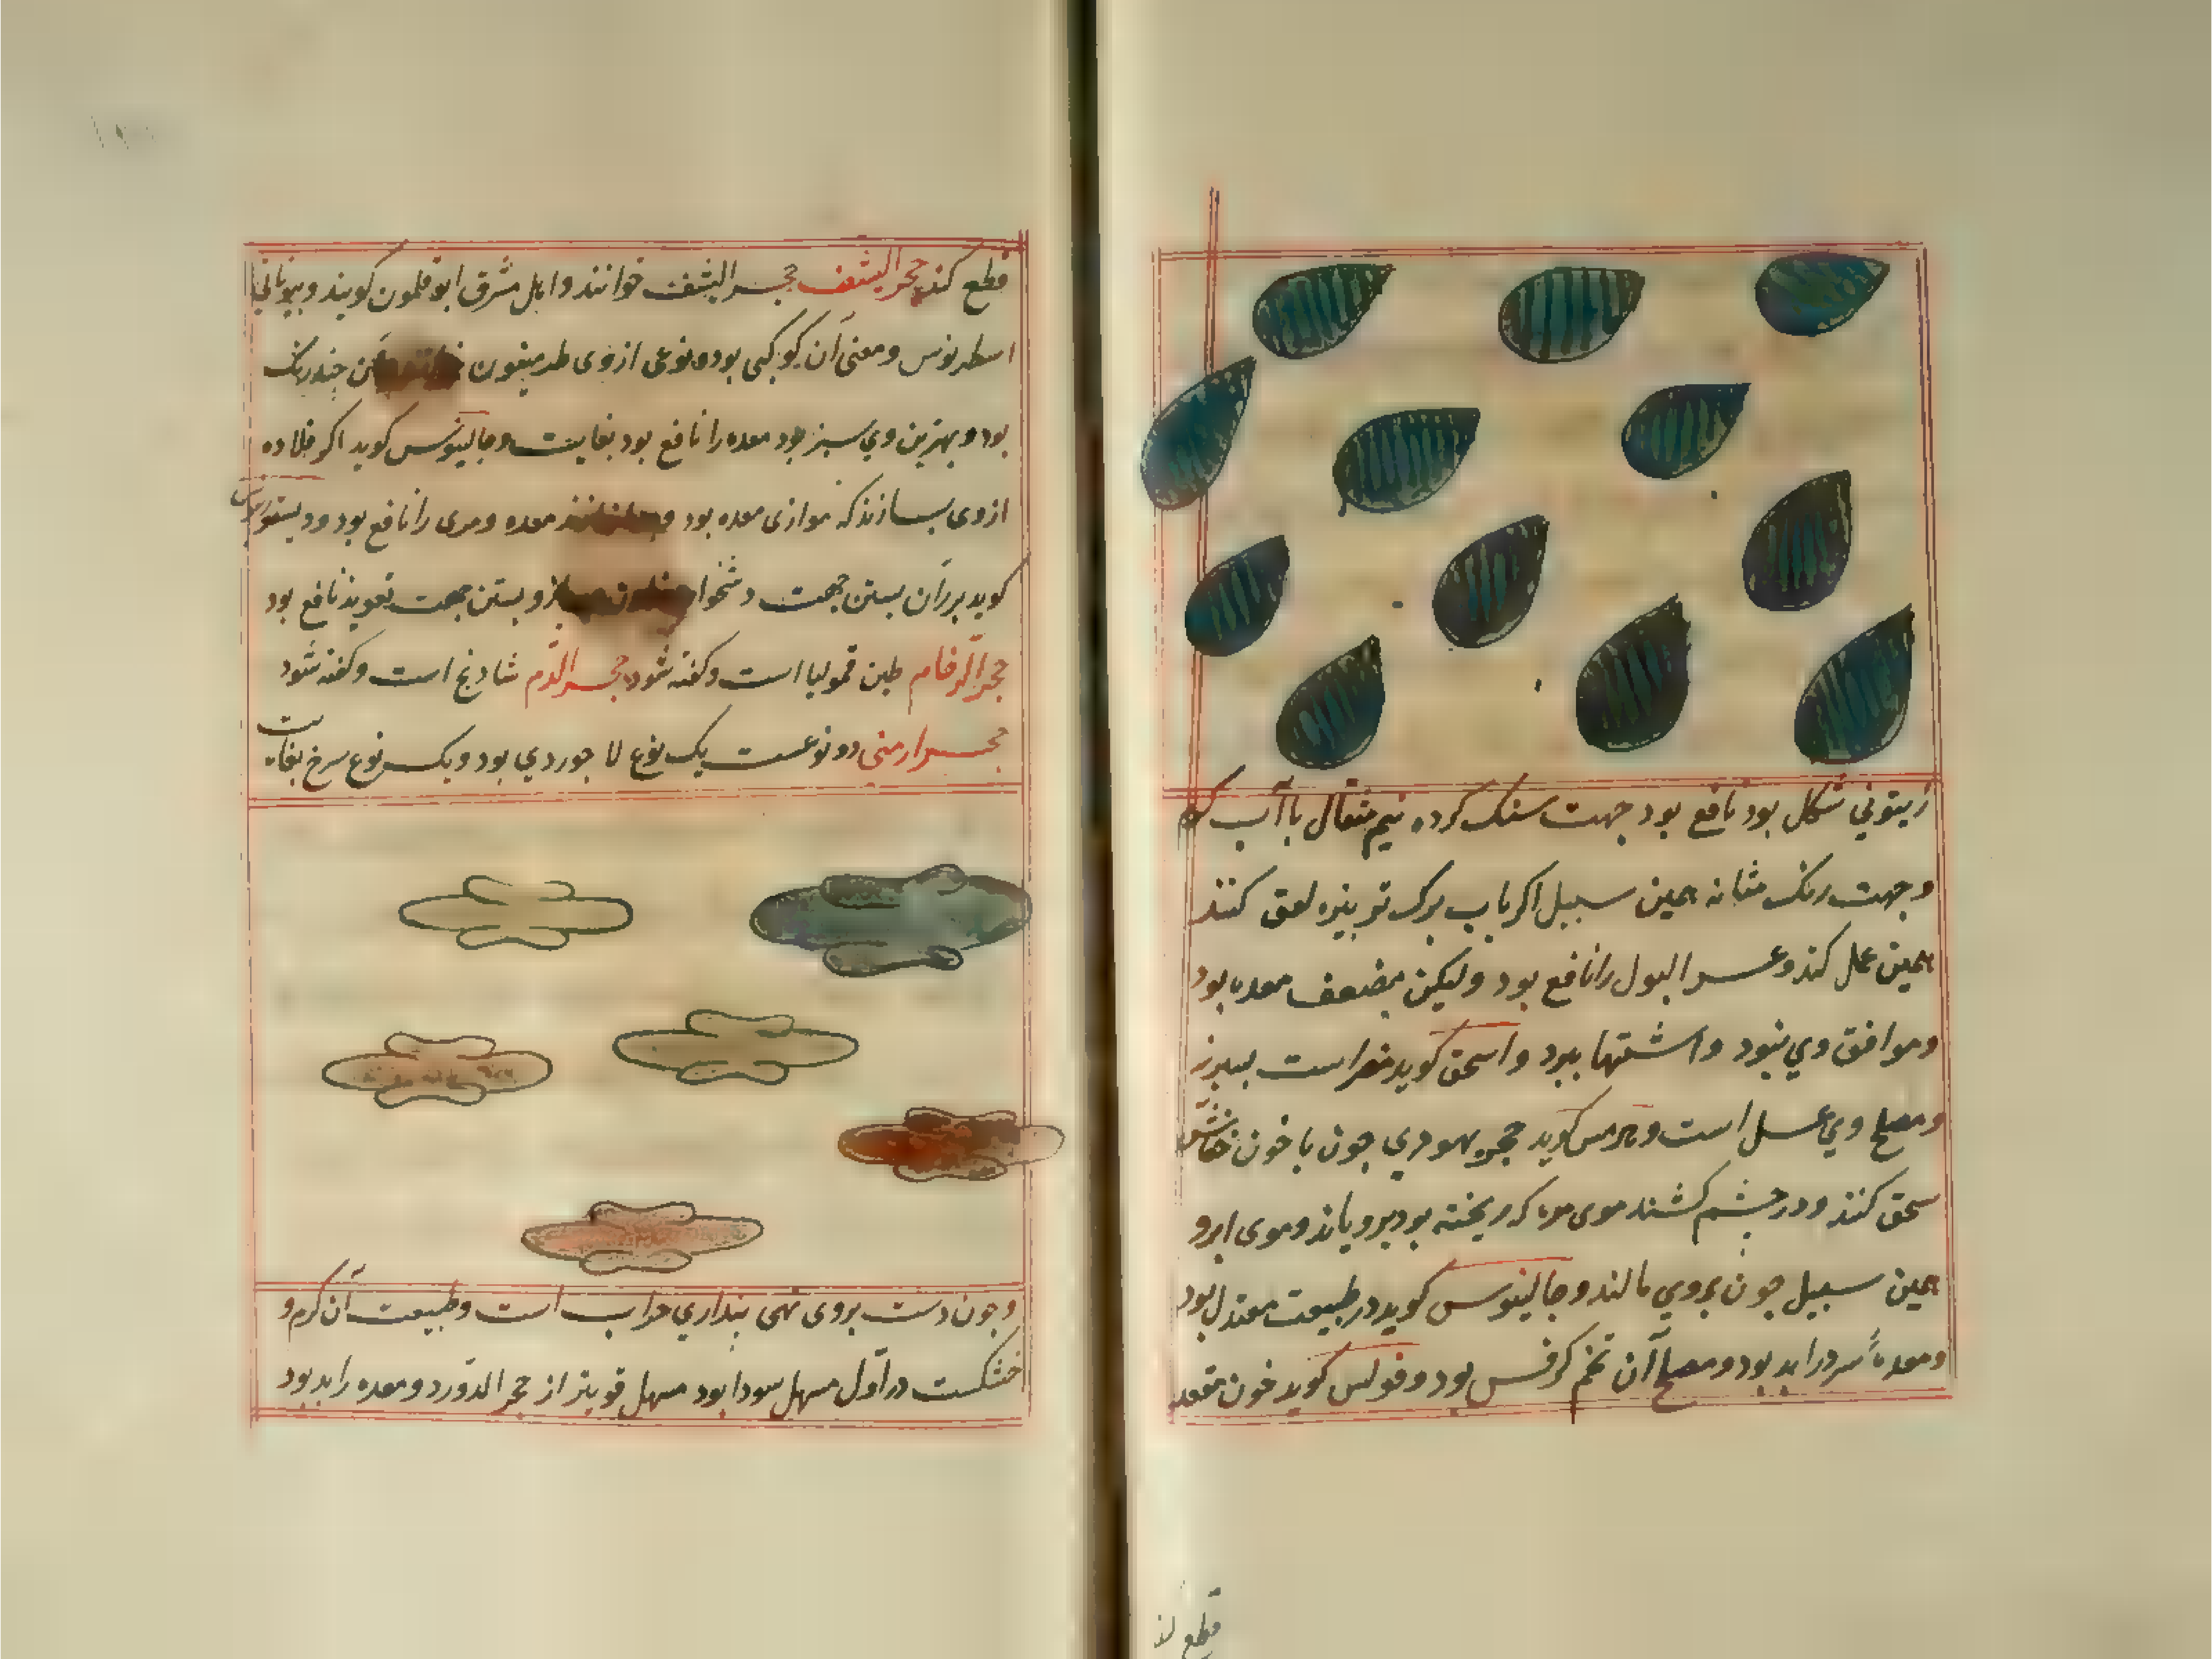 زیتونی شکل بود نافع بود جهت سنک کرده نیم مثقال باآب کرم
وجهت رنک مثانه همین سبیل اکر باب برک تو بنزه لعق کنند
همین عمل کند وعسر البول رانافع بود ولیکن مضعف معده بود
وموافق وي نبود واشتها ببرد واسحق کوید مضراست بسبرز
ومصلح وي عسل است وهرمس کوید حجر یهودي جون با خون خفاش
سحق کنند ودرجشم کشند موی مژه که ریخته بود برویاند وموی ابرو
همین سبیل جون بروي مالند وجالینوس کوید درطبیعت معتدل بود
ومعدهٔ سردرابد بود ومصلح آن تخم کرفس بود وفولس کوید خون مقعد
قطع کند
قطع کند حجر الیشف حجر الیشف خوانند واهل مشرق ابوقلمون کویند وبیونانی
اسطریوس ومعنی آن کوکبی بود ونوعی ازوی طرمینون جندرنک
بود وبهترین وي سبز بود معده را نافع بود بغایت وجالینوس کوید اکر قلاده
ازوی بسازند که موازی معده بود معده ومری را نافع بود ودیسقوریدس
کوید برران بستن جهت دشخوار وبستن جهت تعویذ نافع بود
حجر الرخام طین قمولیا است وکفته شود حجر الدم شادنج است وکفته شود
حجر ارمنی دونوعست یک نوع لاجوردي بود ویک نوع سرخ بغایت
وجون دست بروی نهی بنداري جراب است وطبیعت آن کرم و
خشکست دراول مسهل سودا بود مسهل قویتر از حجر اللاورد ومعده رابد بود